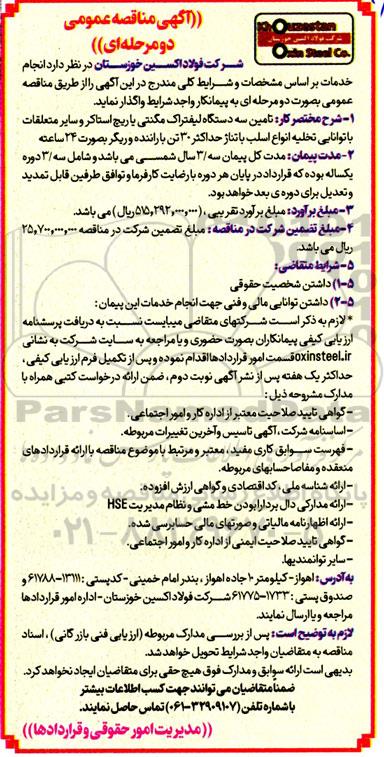 ((آگهی مناقصه عمومی
دو مرحله‌ای))
Khouzestan
شرکت فولاد اکسین خوزستان
Oxin Steel Co.
شرکت فولاد اکسین خوزستان در نظر دارد انجام
خدمات بر اساس مشخصات و شرایط کلی مندرج در این آگهی را از طریق مناقصه
عمومی بصورت دو مرحله ای به پیمانکار واجد شرایط واگذار نماید.
۱- شرح مختصر کار: تامین سه دستگاه لیفتراک مگنتی یا ریچ استاکر و سایر متعلقات
با توانایی تخلیه انواع اسلب با تناژ حداکثر ۳۰ تن با راننده و ریگر بصورت ۲۴ ساعته
۲- مدت پیمان: مدت کل پیمان سه/۳ سال شمسی می باشد و شامل سه/۳ دوره
یکساله بوده که قرارداد در پایان هر دوره با رضایت کارفرما و توافق طرفین قابل تمدید
و تعدیل برای دوره ی بعد خواهد بود.
۳- مبلغ برآورد: مبلغ برآورد تقریبی، (۵۱۵,۲۹۲,۰۰۰,۰۰۰ ریال) می باشد.
۴- مبلغ تضمین شرکت در مناقصه: مبلغ تضمین شرکت در مناقصه ۲۵,۷۰۰,۰۰۰,۰۰۰
ریال می باشد.
۵- شرایط متقاضی:
۵-۱) داشتن شخصیت حقوقی
۵-۲) داشتن توانایی مالی و فنی جهت انجام خدمات این پیمان:
* لازم به ذکر است شرکتهای متقاضی میبایست نسبت به دریافت پرسشنامه
ارزیابی کیفی پیمانکاران بصورت حضوری و یا مراجعه به سایت شرکت به نشانی
oxinsteel.ir قسمت امور قراردادها اقدام نموده و پس از تکمیل فرم ارزیابی کیفی،
حداکثر یک هفته پس از نشر آگهی نوبت دوم، ضمن ارائه درخواست کتبی همراه با
مدارک مشروحه ذیل:
- گواهی تایید صلاحیت معتبر از اداره کار و امور اجتماعی.
- اساسنامه شرکت، آگهی تاسیس و آخرین تغییرات مربوطه.
- فهرست سوابق کاری مفید، معتبر و مرتبط با موضوع مناقصه با ارائه قراردادهای
منعقده و مفاصاحسابهای مربوطه.
- ارائه شناسه ملی، کد اقتصادی و گواهی ارزش افزوده.
- ارائه مدارکی دال بر دارا بودن خط مشی و نظام مدیریت HSE
- ارائه اظهارنامه مالیاتی و صورتهای مالی حسابرسی شده.
- گواهی تایید صلاحیت ایمنی از اداره کار و امور اجتماعی.
- سایر توانمندیها.
به آدرس: اهواز - کیلومتر ۱۰ جاده اهواز، بندر امام خمینی - کدپستی: ۱۳۱۱۱-۶۱۷۸۸ و
صندوق پستی: ۱۷۳۳-۶۱۷۷۵ شرکت فولاد اکسین خوزستان - اداره امور قراردادها
مراجعه و یا ارسال نمایند.
لازم به توضیح است: پس از بررسی مدارک مربوطه (ارزیابی فنی بازرگانی)، اسناد
مناقصه به متقاضیان واجد شرایط تحویل خواهد شد.
بدیهی است ارائه سوابق و مدارک فوق هیچ حقی برای متقاضیان ایجاد نخواهد کرد.
ضمناً متقاضیان می توانند جهت کسب اطلاعات بیشتر
با شماره تلفن (۳۲۹۰۹۱۰۷-۰۶۱) تماس حاصل نمایند.
((مدیریت امور حقوقی و قراردادها))